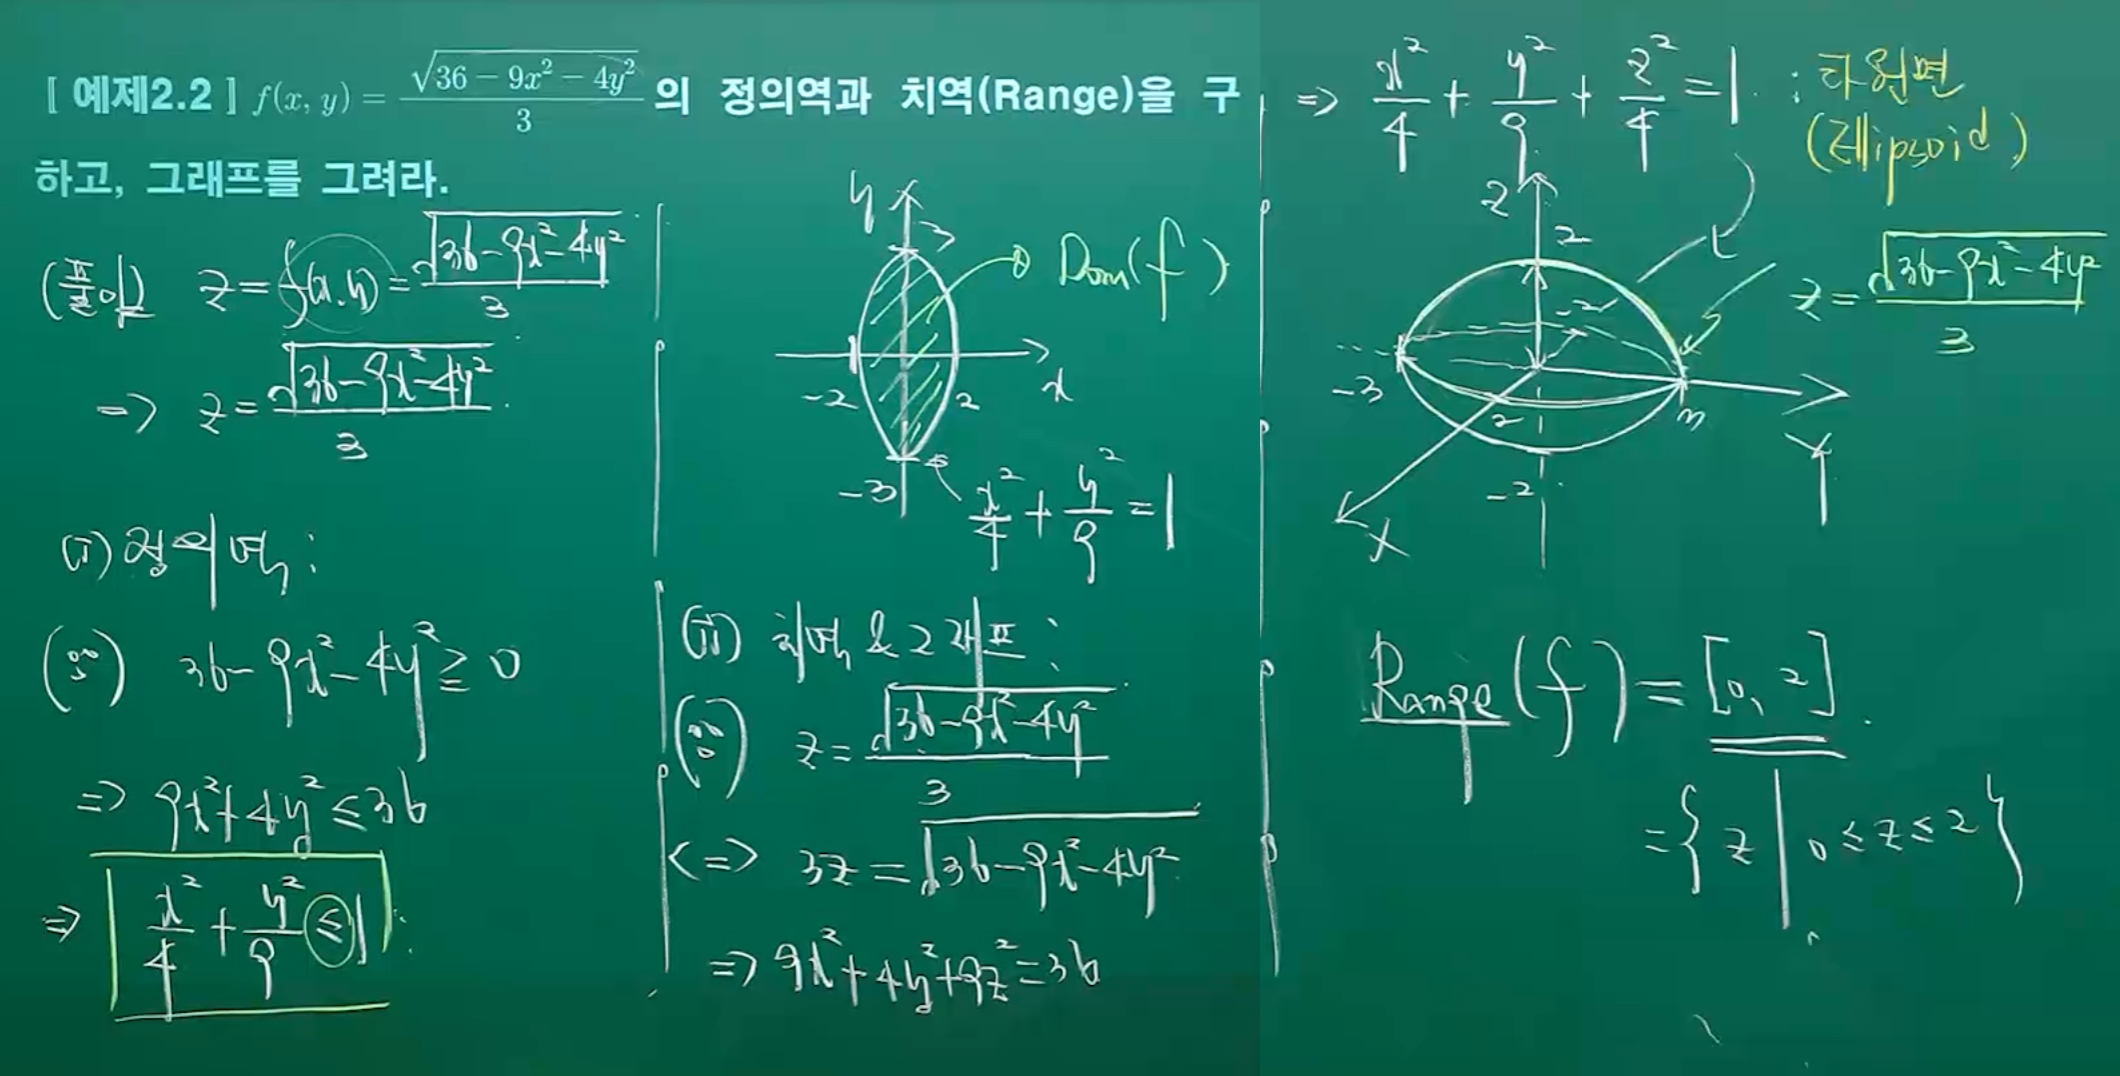 [ 예제2.2 ] f(x, y) = √(36 − 9x² − 4y²) / 3 의 정의역과 치역(Range)을 구
하고, 그래프를 그려라.
(풀이) z = f(x, y) = √(36−9x²−4y²) / 3
=> z = √(36−9x²−4y²) / 3
(i) 정의역 :
(∵) 36−9x²−4y² ≥ 0
=> 9x²+4y² ≤ 36
=> x²/4 + y²/9 ≤ 1
y
3
Dom(f)
-2 2 x
-3
x²/4 + y²/9 = 1
(ii) 치역 & 그래프 :
(∵) z = √(36−9x²−4y²) / 3
<=> 3z = √(36−9x²−4y²)
=> 9x²+4y²+9z² = 36
=> x²/4 + y²/9 + z²/4 = 1 : 타원면
(Ellipsoid)
z
2
z = √(36−9x²−4y²) / 3
-2
-3
2
3
Y
-2
X
Range(f) = [0, 2].
= { z | 0 ≤ z ≤ 2 }